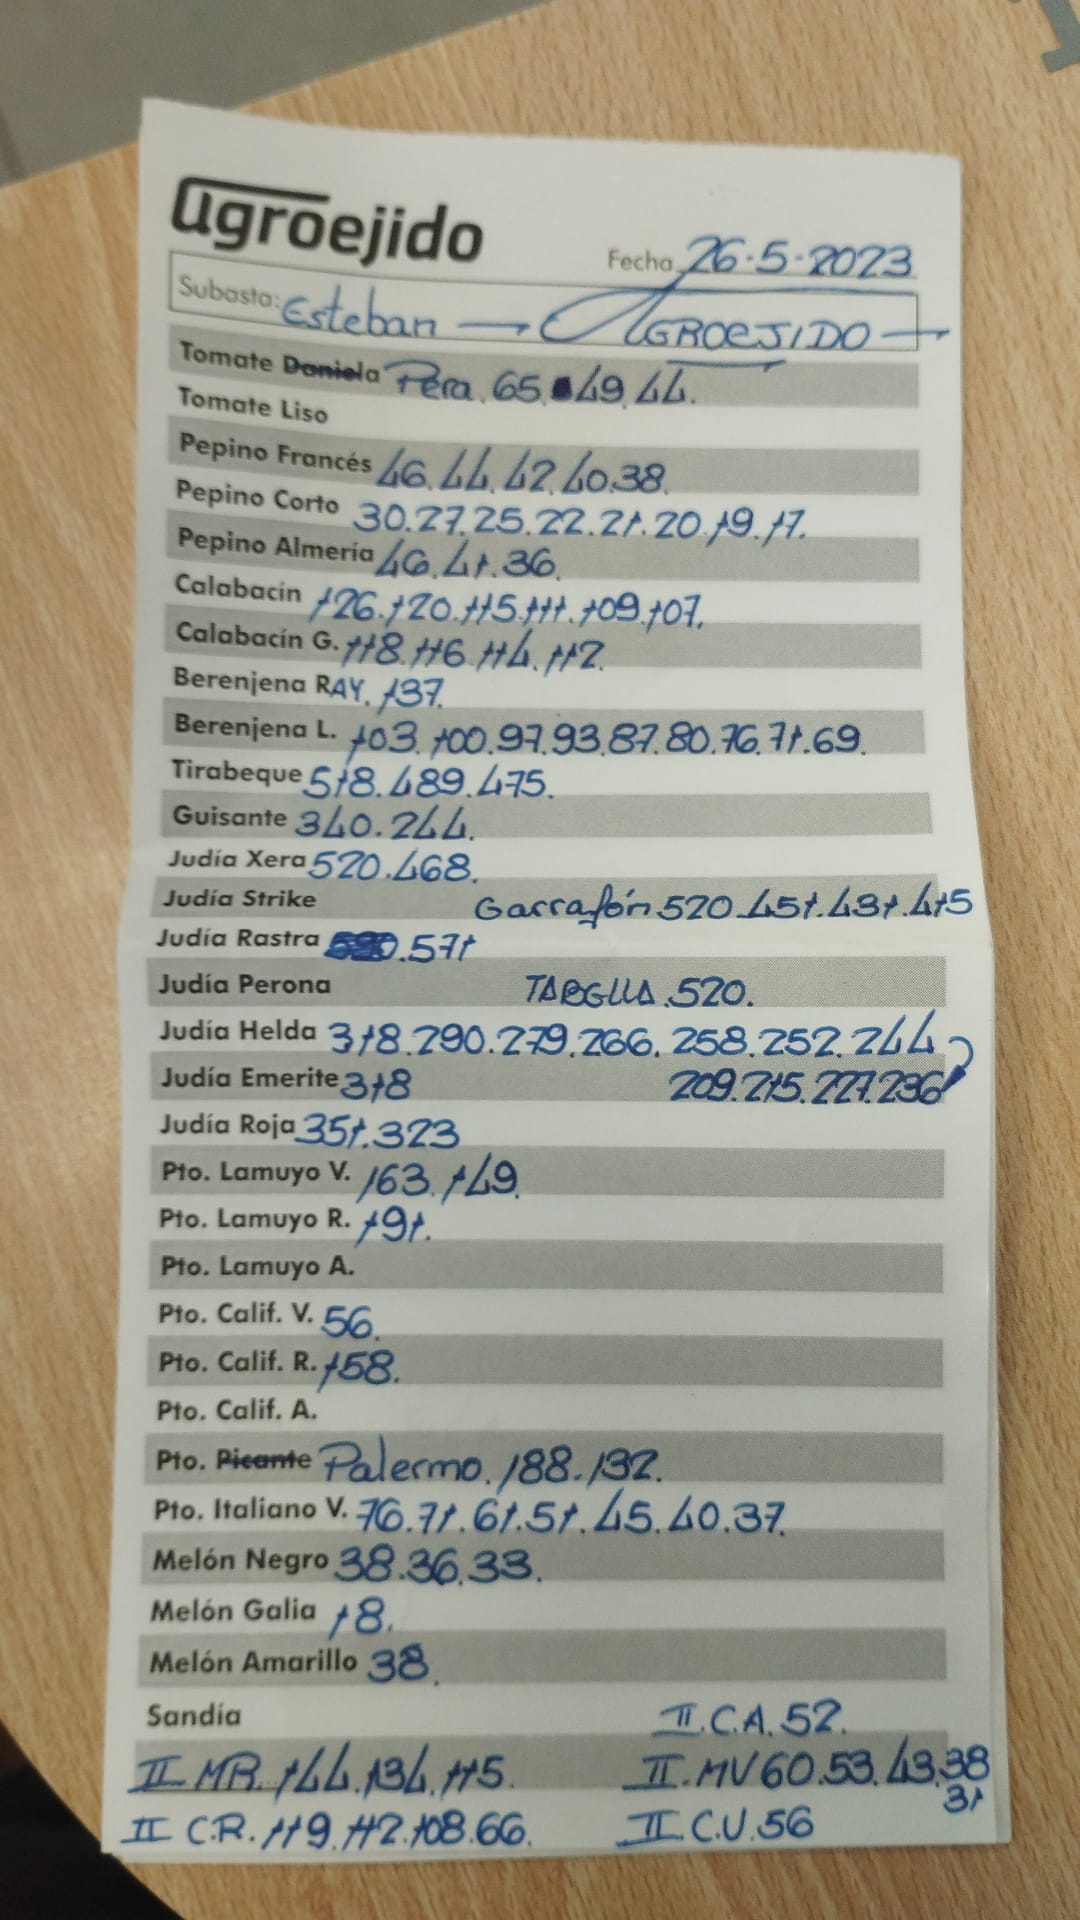 agroejido
Fecha 26-5-2023
Subasta: Esteban → AGROEJIDO
Tomate Daniela Pera. 65.49.44.
Tomate Liso
Pepino Francés 46.44.42.40.38.
Pepino Corto 30.27.25.22.21.20.19.17.
Pepino Almería 46.41.36.
Calabacín 126.120.115.111.109.107.
Calabacín G. 118.116.114.112.
Berenjena RAY. 137.
Berenjena L. 103.100.97.93.87.80.76.71.69.
Tirabeque 518.489.475.
Guisante 340.244.
Judía Xera 520.468.
Judía Strike Garrafón 520.451.431.415
Judía Rastra .571
Judía Perona TABELLA.520.
Judía Helda 318.290.279.266.258.252.244
Judía Emerite 318 209.215.227.236
Judía Roja 351.323
Pto. Lamuyo V. 163.149.
Pto. Lamuyo R. 191.
Pto. Lamuyo A.
Pto. Calif. V. 56.
Pto. Calif. R. 158.
Pto. Calif. A.
Pto. Picante Palermo. 188.132.
Pto. Italiano V. 76.71.61.51.45.40.37.
Melón Negro 38.36.33.
Melón Galia 18.
Melón Amarillo 38.
Sandía II.C.A.52.
II MR. 144.134.115. II.MV 60.53.43.38
31
II C.R. 119.112.108.66. II.C.V.56